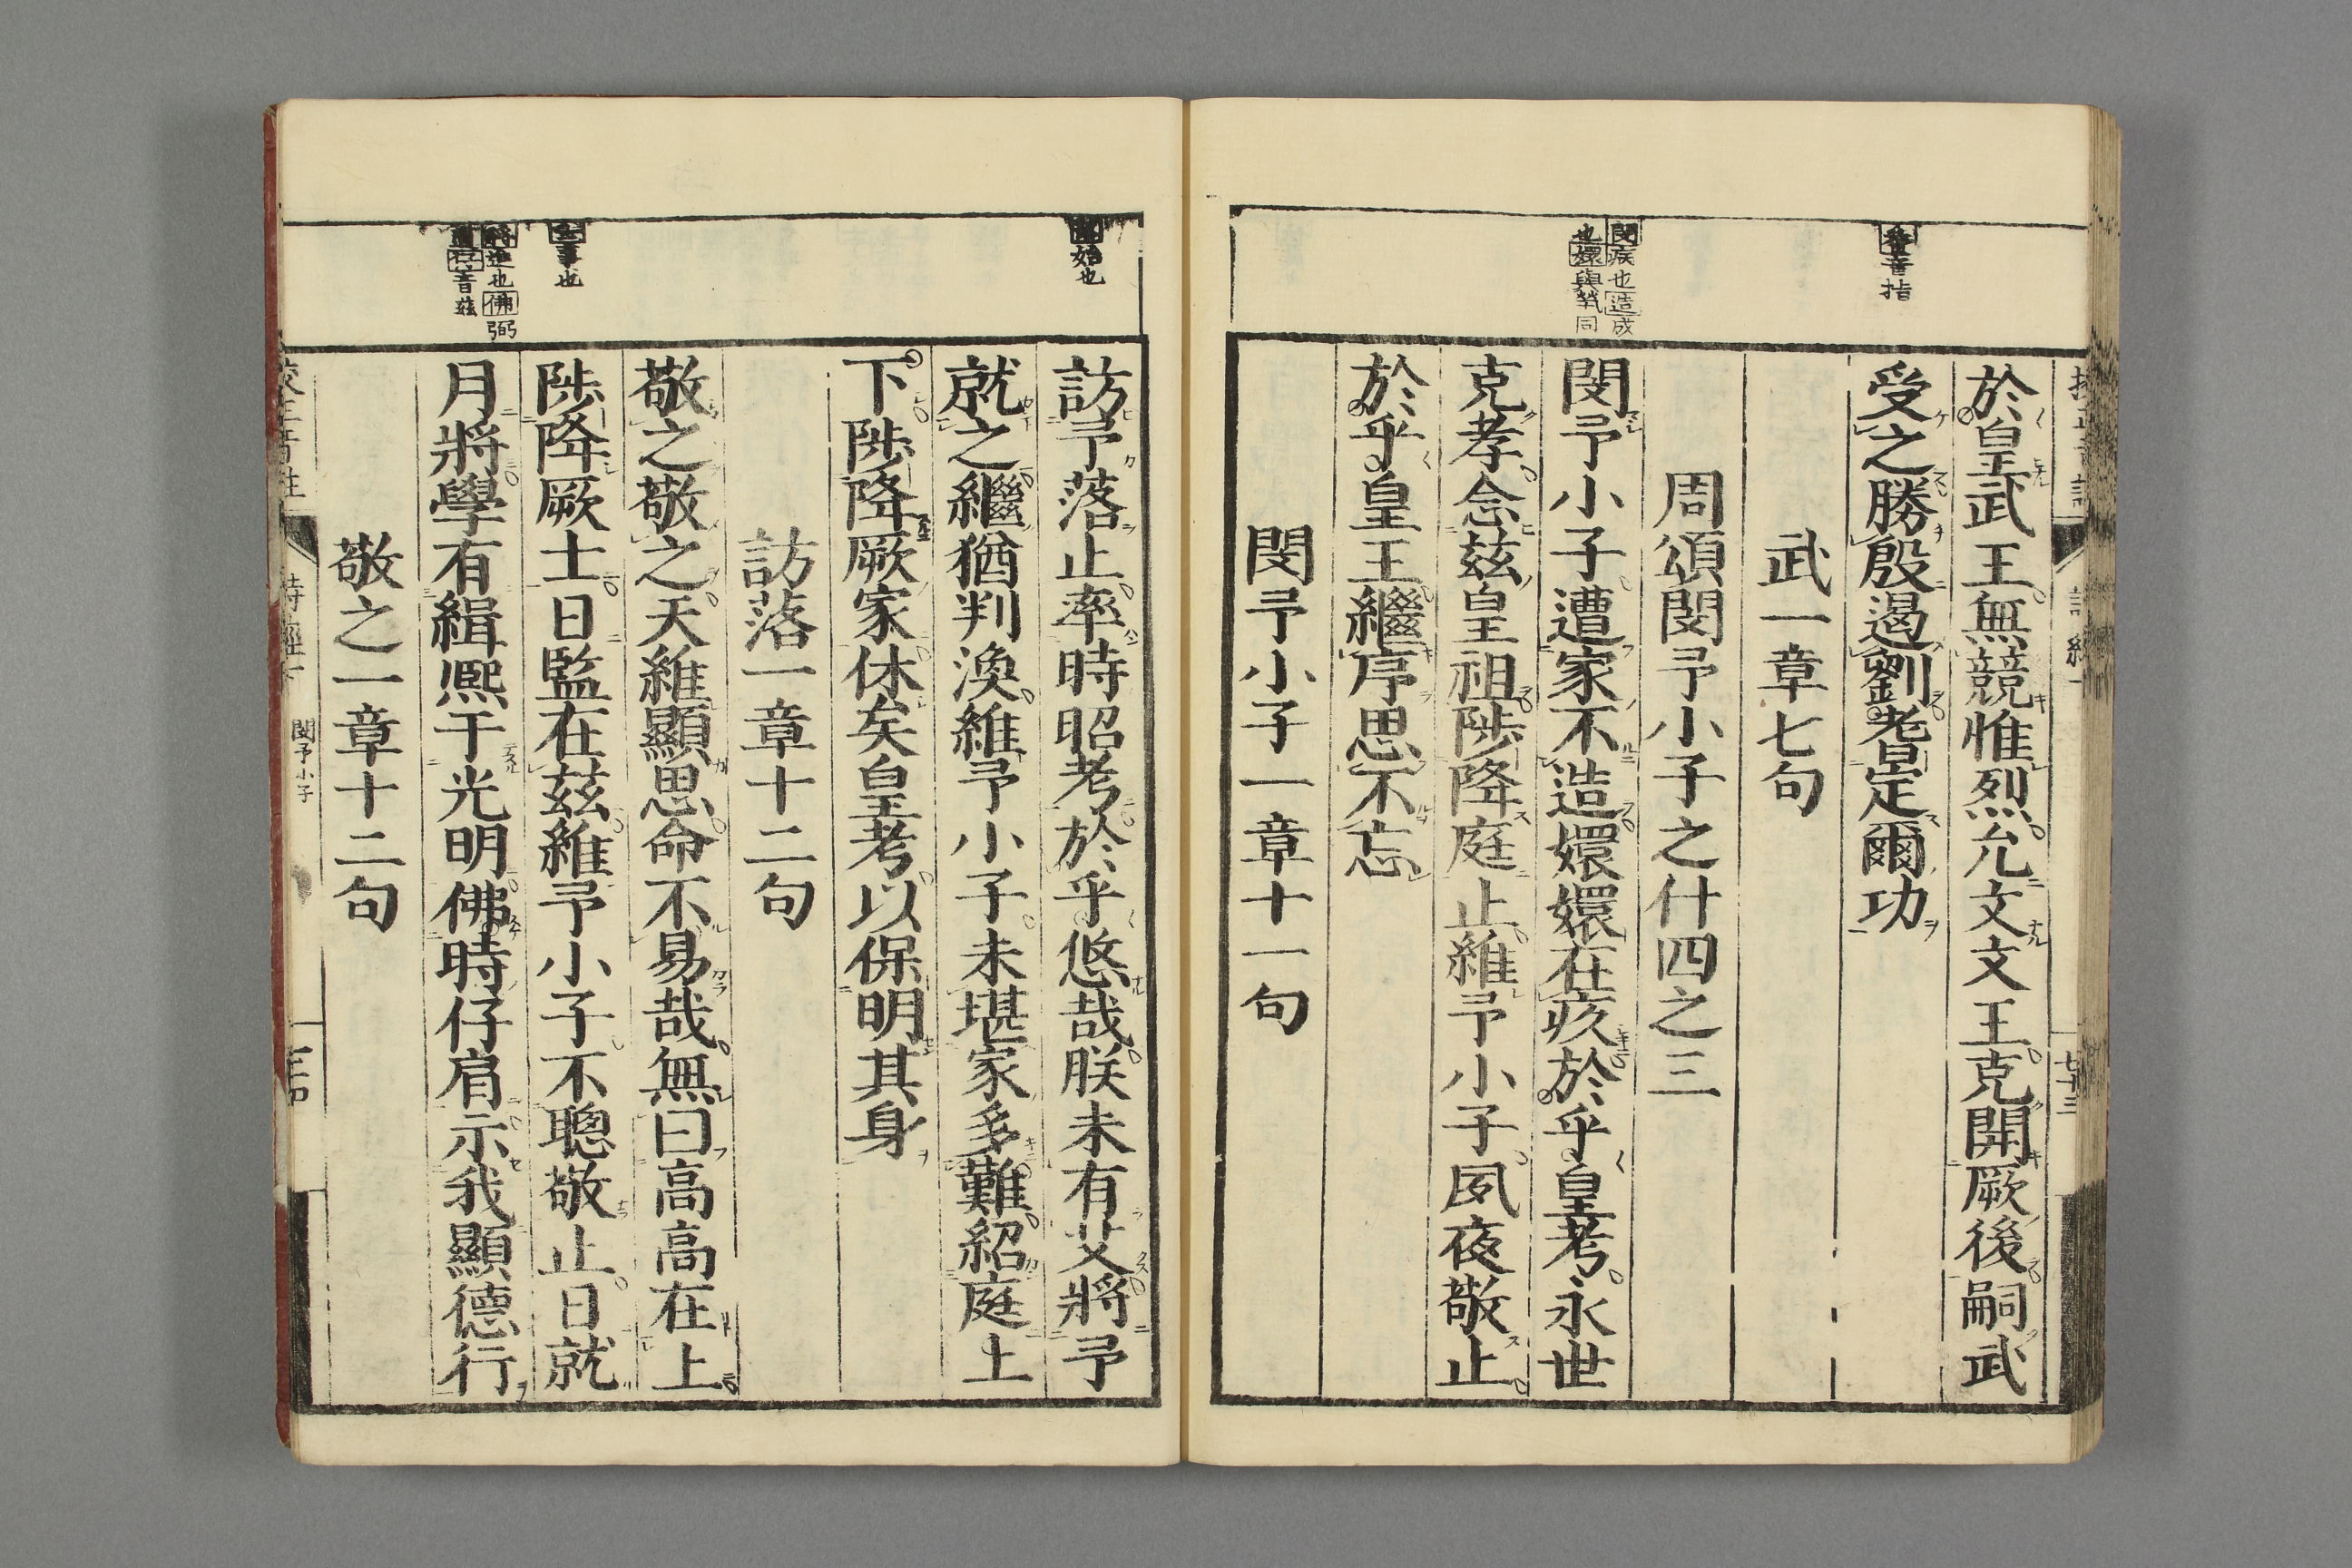 耆音指
閔疾也造成
也嬛與煢同
於皇武王無競惟烈允文文王克開厥後嗣武
受之勝殷遏劉耆定爾功
武一章七句
周頌閔予小子之什四之三
閔予小子遭家不造嬛嬛在疚於乎皇考永世
克孝念茲皇祖陟降庭止維予小子夙夜敬止
於乎皇王繼序思不忘
閔予小子一章十一句
始也
事也
將進也佛弼
音茲
訪予落止率時昭考於乎悠哉朕未有艾將予
就之繼猶判渙維予小子未堪家多難紹庭上
下陟降厥家休矣皇考以保明其身
訪落一章十二句
敬之敬之天維顯思命不易哉無曰高高在上
陟降厥士日監在茲維予小子不聰敬止日就
月將學有緝熙于光明佛時仔肩示我顯德行
敬之一章十二句
閔予小子